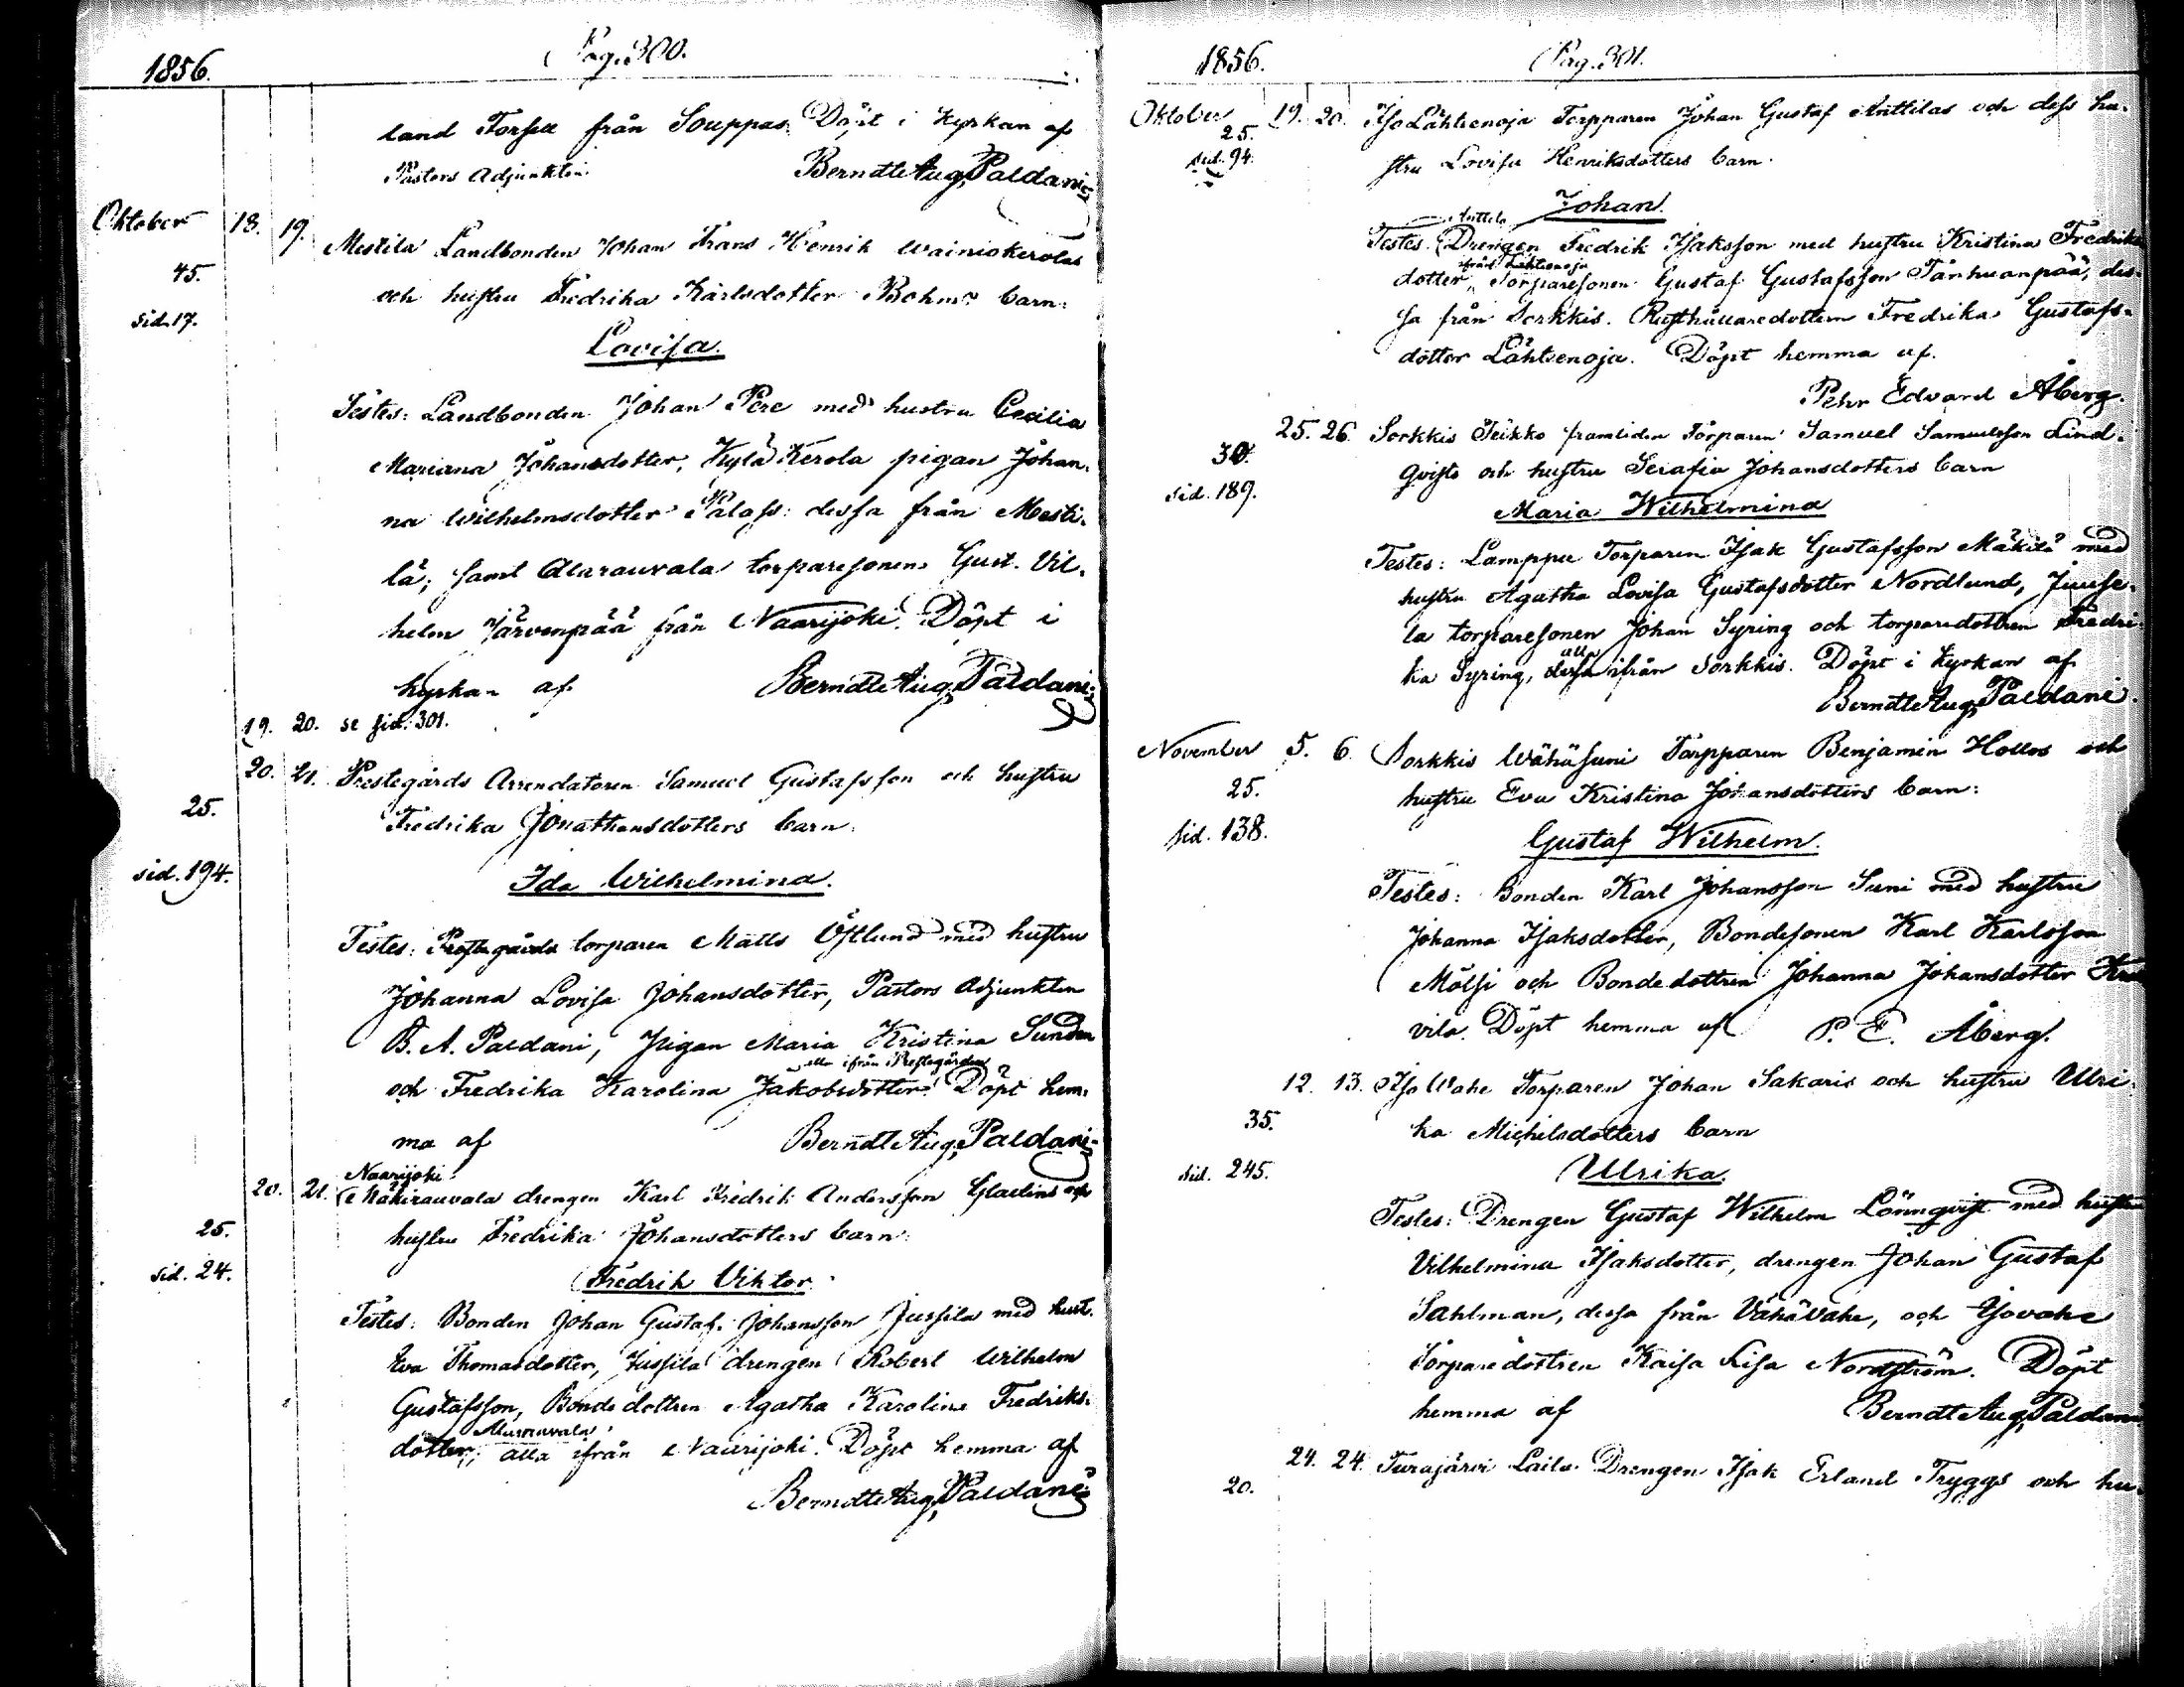 1856. Pag. 300.
land Forsell från Souppas. Döpt i kyrkan af
Pastors Adjunkten Berndt Aug. Paldani
Oktober 18. 19. Mestilä Landbonden Johan Frans Henrik Wainiokerolas
45. och hustru Fredrika Karlsdotter Bohms barn:
Sid. 17.
Lovisa.
Testes: Landbonden Johan Pere med hustru Cecilia
Mariana Johansdotter, Kylä Kerola pigan Johan-
na Wilhelmsdotter Palass: dessa från Mesti-
lä; samt Alarauvala torparesonen Gust. Vil-
helm Järvenpää från Naarijoki. Döpt i
kyrkan af Berndt Aug. Paldani
19. 20. se sid. 301.
20. 21. Prestegårds Arrendatoren Samuel Gustafsson och hustru
25. Fredrika Jonathansdotters barn.
sid. 194.
Ida Wilhelmina.
Testes: Prestegårds torparen Matts Östlund med hustru
Johanna Lovisa Johansdotter, Pastors Adjunkten
B. A. Paldani, Pigan Maria Kristina Sunden
och Fredrika Karolina Jakobsdotter alla ifrån Prestegården. Döpt hem-
ma af Berndt Aug. Paldani
Naarijoki
20. 21. Mäkirauvala drengen Karl Fredrik Andersson Gladins och
25. hustru Fredrika Johansdotters barn:
Sid. 24.
Fredrik Viktor
Testes: Bonden Johan Gustaf Johansson Jussila med hust.
Eva Thomasdotter, Jussila drengen Robert Wilhelm
Gustafsson, Bondedottren Agatha Karolina Fredriks-
dotter, Alarauvala, alla ifrån Naarijoki. Döpt hemma af
Berndt Aug. Paldani
1856. Pag. 301.
Oktober 19. 20. Iso Lähteenoja Torpparen Johan Gustaf Anttilas och dess hu-
25. stru Lovisa Henriksdotters barn.
sid. 94.
Johan.
Testes. Anttila Drengen Fredrik Isaksson med hustru Kristina Fredriks
dotter, ifrån Lähteenoja Torparesonen Gustaf Gustafsson Tanhuanpää, des-
sa från Sorkkis. Rusthållaredottern Fredrika Gustafs-
dotter Lähteenoja. Döpt hemma af.
Pehr Edvard Åberg.
25. 26. Sorkkis Teikko framliden Torparen Samuel Samuelsson Lind-
30. qvists och hustru Serafia Johansdotters barn
sid. 189.
Maria Wilhelmina
Testes: Lamppu Torparen Isak Gustafsson Mäkilä med
hustru Agatha Lovisa Gustafsdotter Nordlund, Juuse-
la torparesonen Johan Syring och torparedottren Fredri-
ka Syring, alla ifrån Sorkkis. Döpt i kyrkan af
Berndt Aug. Paldani.
November 5. 6. Sorkkis Wähäsuni Torpparen Benjamin Hollos och
25. hustru Eva Kristina Johansdotters barn:
Sid. 138.
Gustaf Wilhelm.
Testes: Bonden Karl Johansson Suni med hustru
Johanna Isaksdotter, Bondesonen Karl Karlsson
Mölsi och Bondedottren Johanna Johansdotter
vila. Döpt hemma af P. E. Åberg.
12. 13. Iso Wahe Torparen Johan Sakaris och hustru Ulri-
35. ka Michelsdotters barn
sid. 245.
Ulrika
Testes: Drengen Gustaf Wilhelm Lönnqvist med hustru
Vilhelmina Isaksdotter, drengen Johan Gustaf
Sahlman, dessa från Vähävahe, och Isovahe
Torparedottren Kaisa Lisa Nordström. Döpt
hemma af Berndt Aug. Paldani
24. 24. Turajärvi Laila Drengen Isak Erland Tryggs och hu-
20.